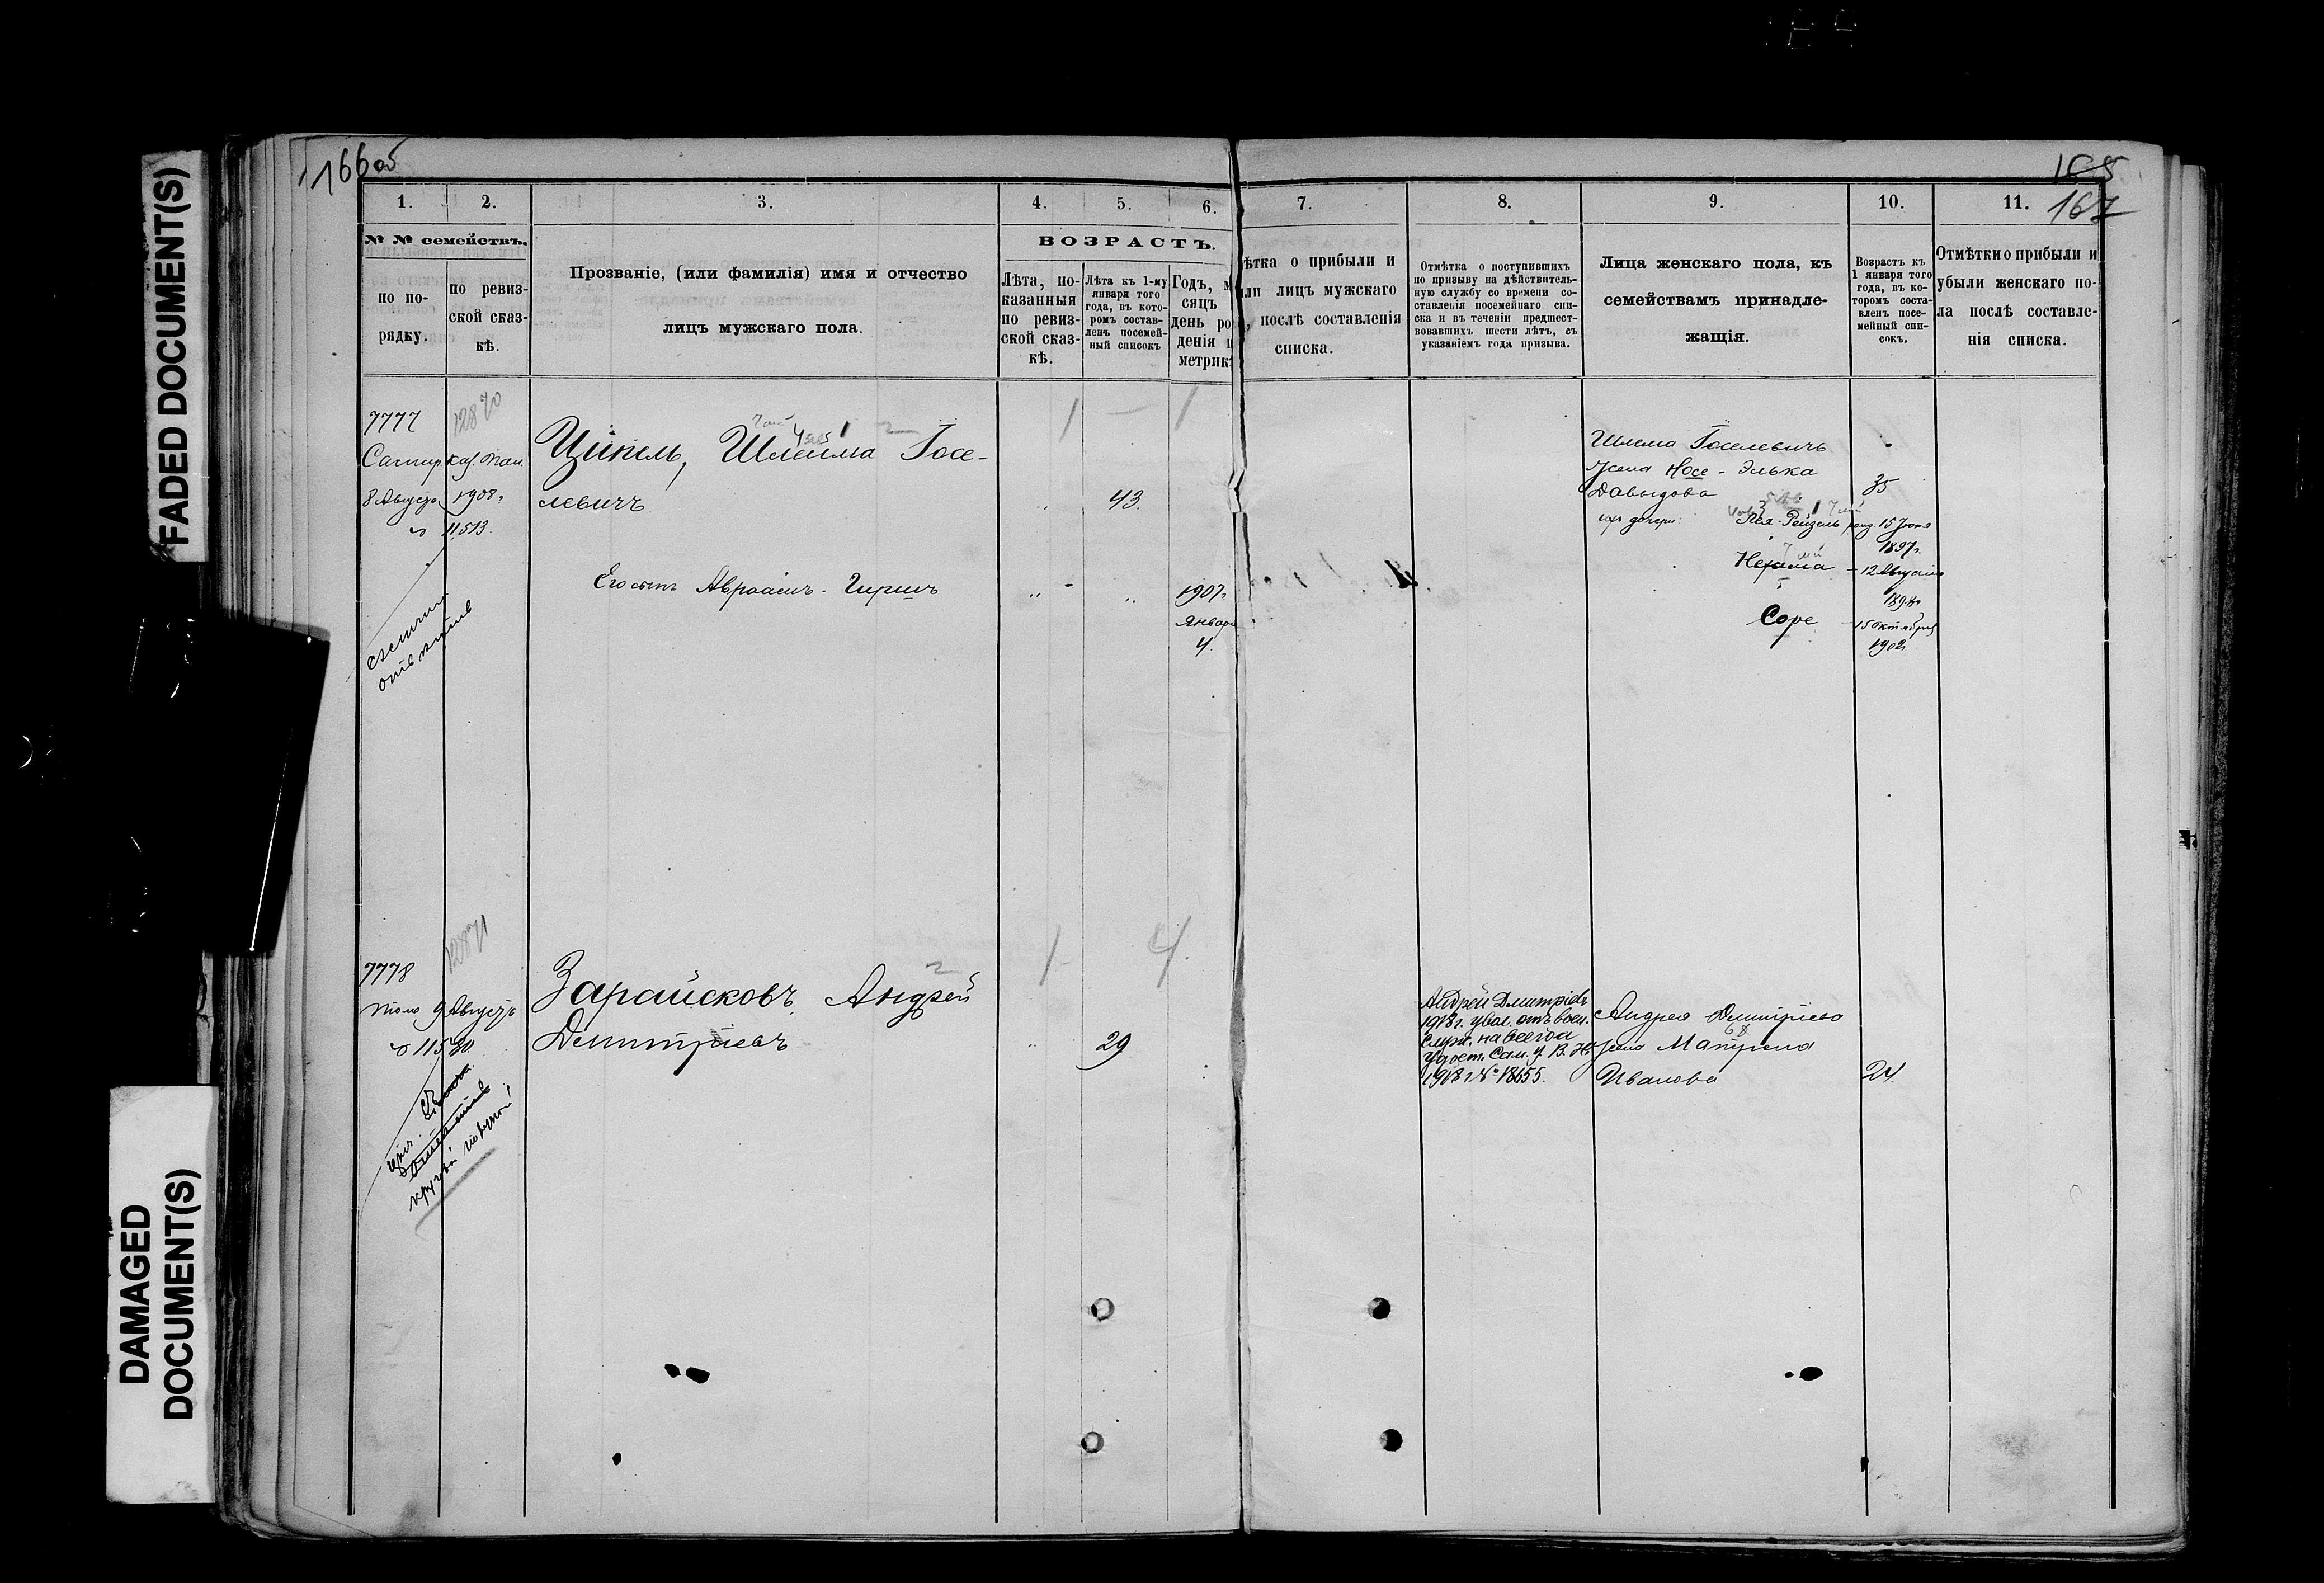 FAADED DOCUMENT(S)
DAMAGED
DOCUMENT(S)
166 об
165
167
1. 2. 3. 4. 5. 6. 7. 8. 9. 10. 11.
№ № семействъ.
по по-
рядку.
по ревиз-
ской сказ-
кѣ.
Прозваніе, (или фамилія) имя и отчество
лицъ мужскаго пола.
ВОЗРАСТЪ.
Лѣта, по-
казанныя
по ревиз-
ской сказ-
кѣ.
Лѣта къ 1-му
января того
года, въ кото-
ромъ состав-
ленъ посемей-
ный списокъ
Годъ, м
сяцъ
день ро
денія п
метрик
ѣтка о прибыли и
ыли лицъ мужскаго
, послѣ составленія
списка.
Отмѣтка о поступившихъ
по призыву на дѣйствитель-
ную службу со времени со-
ставленія посемейнаго спи-
ска и въ теченіи предшест-
вовавшихъ шести лѣтъ, съ
указаніемъ года призыва.
Лица женскаго пола, къ
семействамъ принадле-
жащія.
Возрастъ къ
1 января того
года, въ ко-
торомъ соста-
вленъ посе-
мейный спи-
сокъ.
Отмѣтки о прибыли и
убыли женскаго по-
ла послѣ составле-
нія списка.
7777
12870
8 Августа 1908 г
11,513.
Ципель, Шлейма Іосе-
левичъ
43.
Его сынъ Авраамъ-Гиршъ
1907 г
Января
4.
Шлема Іоселевичъ
жена Носе-Элька
Давыдова
35
ихъ дочери: Лея-Рейзель
род. 15 Іюня
1897 г.
Нехама
12 Августа
Соре
15 Октября
1902
7778
12871
тоже 9 Августа
Зарайсковъ, Андрей
Дмитріевъ
29
Андрей Дмитріевъ
1918 г. увол. отъ воен.
служ. навсегда
1918 г № 18655.
Андрея Дмитріева
жена Матрена
Иванова
24